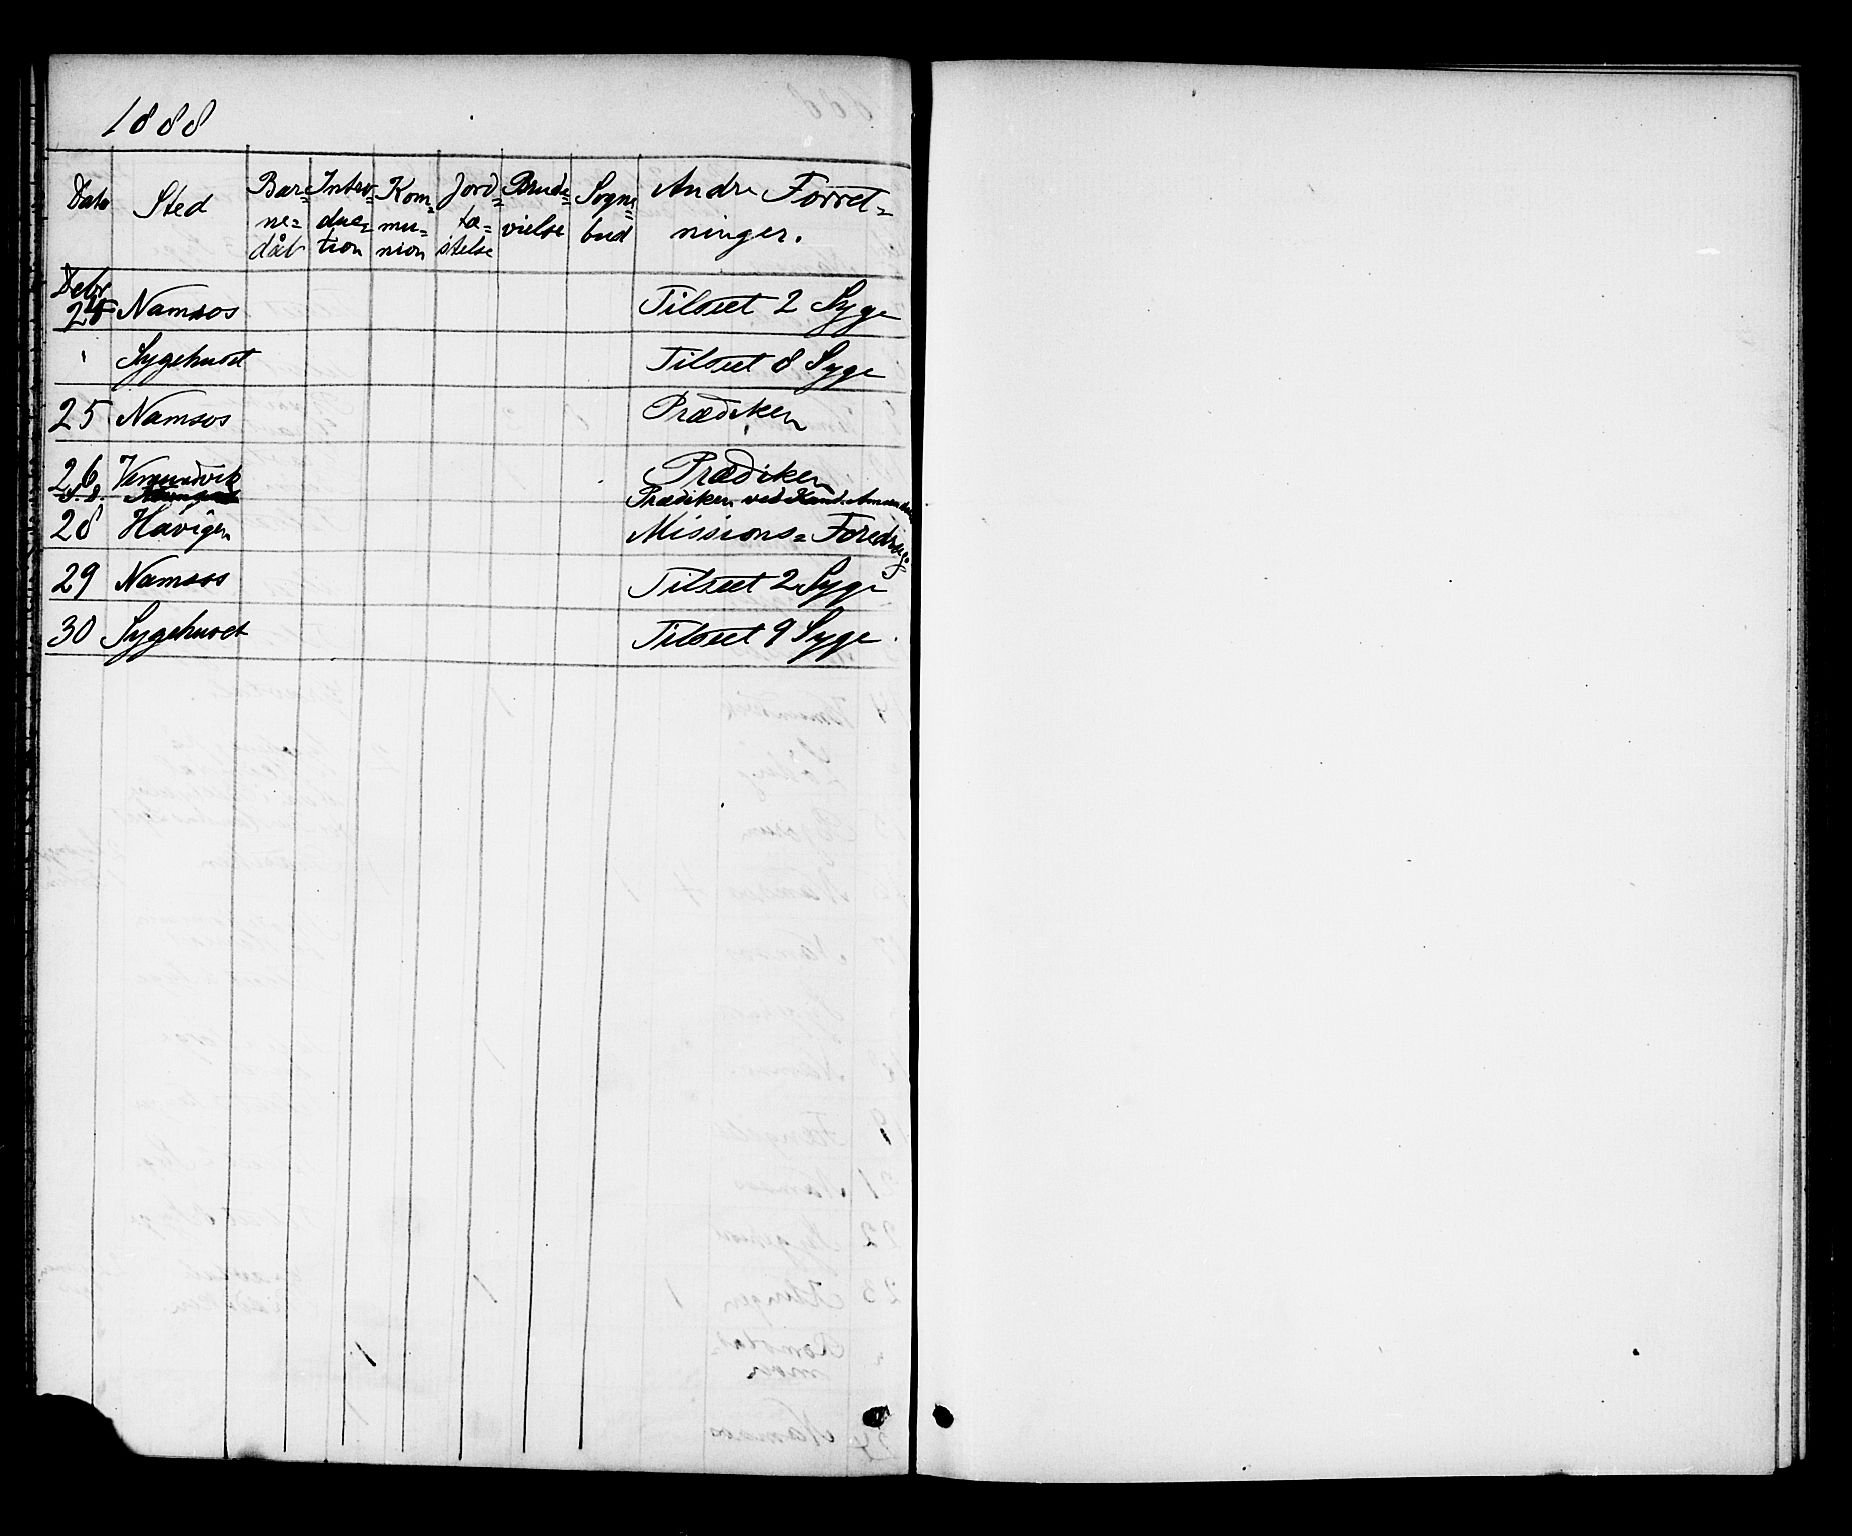 1888
Dato Sted Barnedåb Introduction Kommunion Jordfæstelse Brudevielse Sognebud Andre Forretninger.
Debr
24 Namsos Tilseet 2 Syge
" Sygehuset Tilseet 8 Syge
25 Namsos Prædiken
26 Vemundvik Prædiken
s. d. Prædiken ved Kand.
28 Havigen Missions=Foredrag
29 Namsos Tilseet 2 Syge
30 Sygehuset Tilseet 9 Syge.